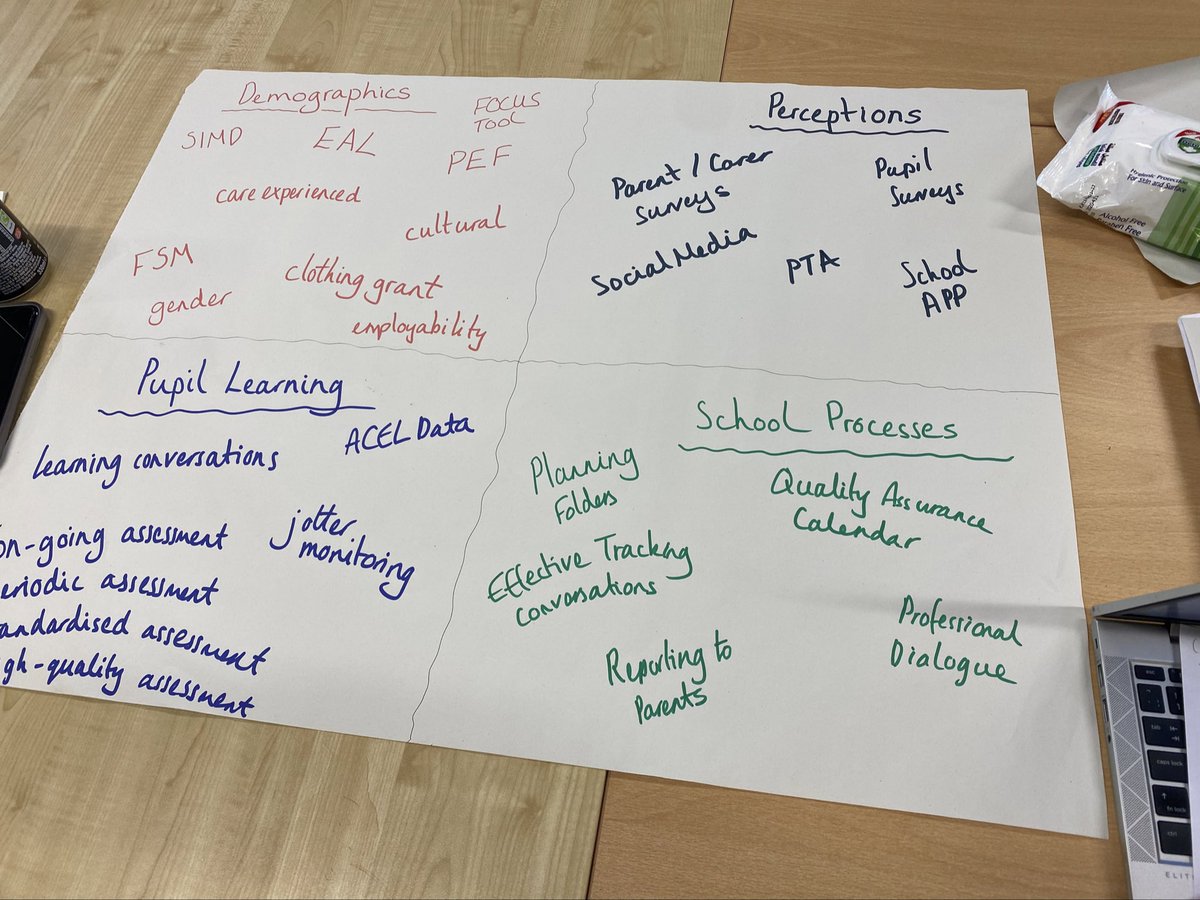 Demographics
SIMD
EAL
FOCUS
TOOL
PEF
care experienced
cultural
FSM
clothing grant
gender
employability
Perceptions
Parent / Carer
Surveys
Pupil
Surveys
Social Media
PTA
School
APP
Pupil Learning
ACEL Data
learning conversations
on-going assessment
jotter
monitoring
eriodic assessment
andardised assessment
gh-quality assessment
School Processes
Planning
Folders
Quality Assurance
Calendar
Effective Tracking
conversations
Professional
Dialogue
Reporting to
Parents
Hygienic Protection
For Skin and Surface
Alcohol Free
Paraben Free
esc
tab
caps lock
fn lock
ctrl
ELIT